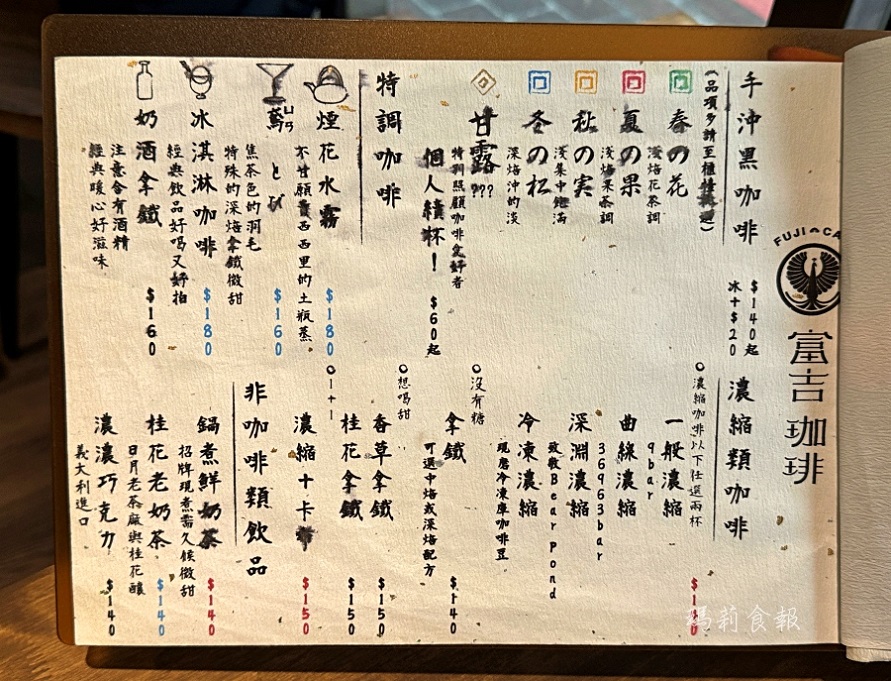 FUJI CA
富吉珈琲
手沖黑咖啡
$140起
冰+$20
春の花
淺焙花茶調
夏の果
淺焙果茶調
秋の実
淺焙中飽滿
冬の松
深焙沖的淡
甘露???
特別照顧咖啡愛好者
個人續杯!
$60起
特調咖啡
煙花水霧
不甘願賣西西里的土瓶蒸。
$180
とび
焦茶色的羽毛
特殊的深焙拿鐵微甜
$160
冰淇淋咖啡
經典飲品好喝又好拍
$180
奶酒拿鐵
注意含有酒精
經典暖心好滋味
$160
濃縮類咖啡
濃縮咖啡以下任選兩杯
一般濃縮
9bar
曲線濃縮
36963bar
深淵濃縮
致敬Bear Pond
冷凍濃縮
現磨冷凍庫咖啡豆
沒有糖
拿鐵
可選中焙或深焙配方
$140
想喝甜
香草拿鐵
$150
桂花拿鐵
$150
1+1
濃縮+卡
$150
非咖啡類飲品
鍋煮鮮奶茶
招牌現煮需久候微甜
$140
桂花老奶茶
日月老茶廠與桂花釀
$140
濃濃巧克力
義大利進口
$140
瑪莉食報